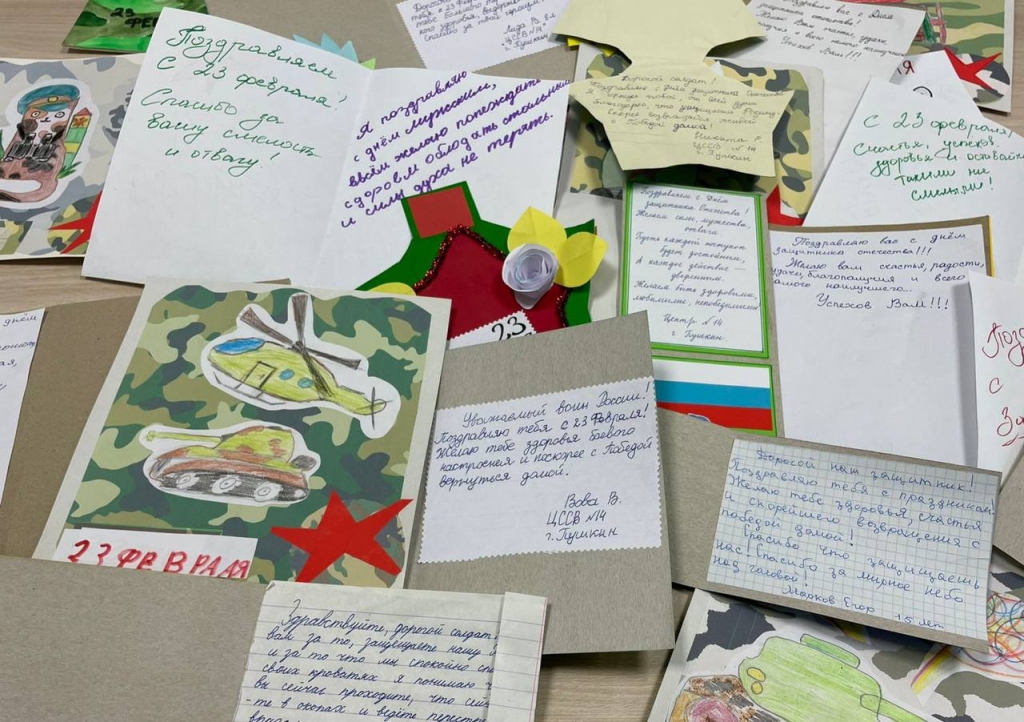 23
ФЕВ
Поздравляем
с 23 февраля!
Спасибо за
вашу смелость
и отвагу!
Я поздравляю
с днём мужским,
всем желаю
здоровьем обладать стальным
и силы духа не терять.
спасибо за
Лида В.
ЦССВ №14
г. Пушкин
Успехов Вам!!!
Дорогой солдат!
Победой домой!
Никита Р.
ЦССВ №14
г. Пушкин
С 23 февраля!
Счастья, успехов,
здоровья и
такими
Поздравляем с Днём
защитника Отечества!
Желаем силы, мужества,
отваги.
Пусть каждый поступок
будет достойным,
А каждое действие —
уверенным.
Желаем быть здоровыми,
любимыми, непобедимыми!
Центр №14
г. Пушкин
Поздравляю вас с днём
защитника отечества!!!
Желаю вам счастья, радости,
удачи, благополучия и всего
самого наилучшего..
Успехов Вам!!!
23
Позд
с
За
днём
23 ФЕВРАЛЯ
Уважаемый воин России!
Поздравляю тебя с 23 Февраля!
Желаю тебе здоровья боевого
настроения и поскорее с Победой
вернуться домой.
Вова В.
ЦССВ №14
г. Пушкин
Дорогой наш защитник!
Поздравляю тебя с праздником!
Желаю тебе здоровья, счастья
и скорейшего возвращения с
победой домой!
Спасибо что защищаешь
нас! Спасибо за мирное небо
над головой!
Марков Егор 15 лет
Здравствуйте, дорогой солдат
вам за то, защищаете нашу
и за то что мы спокойно сп
своих кроватях я понимаю
вы сейчас проходите, что сей
-те в окопах и ведёте перестр